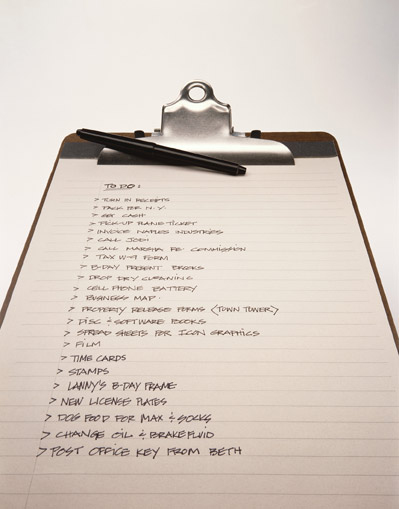 TO DO:
> TURN IN RECEIPTS
> PACK FOR N.Y.
> GET CASH
> PICK-UP PLANE TICKET
> INVOICE NAPLES INDUSTRIES
> CALL JODI
> CALL MARSHA RE: COMMISSION
> TAX W-9 FORM
> B-DAY PRESENT BROOKS
> DROP DRY CLEANING
> CELL PHONE BATTERY
> BUSINESS MAP.
> PROPERTY RELEASE FORMS (TOWN TOWER)
> DISC & SOFTWARE BOOKS
> SPREAD SHEETS FOR ICON GRAPHICS
> FILM
> TIME CARDS
> STAMPS
> LANNY'S B-DAY FRAME
> NEW LICENSE PLATES
> DOG FOOD FOR MAX & SOCKS
> CHANGE OIL & BRAKE FLUID
> POST OFFICE KEY FROM BETH